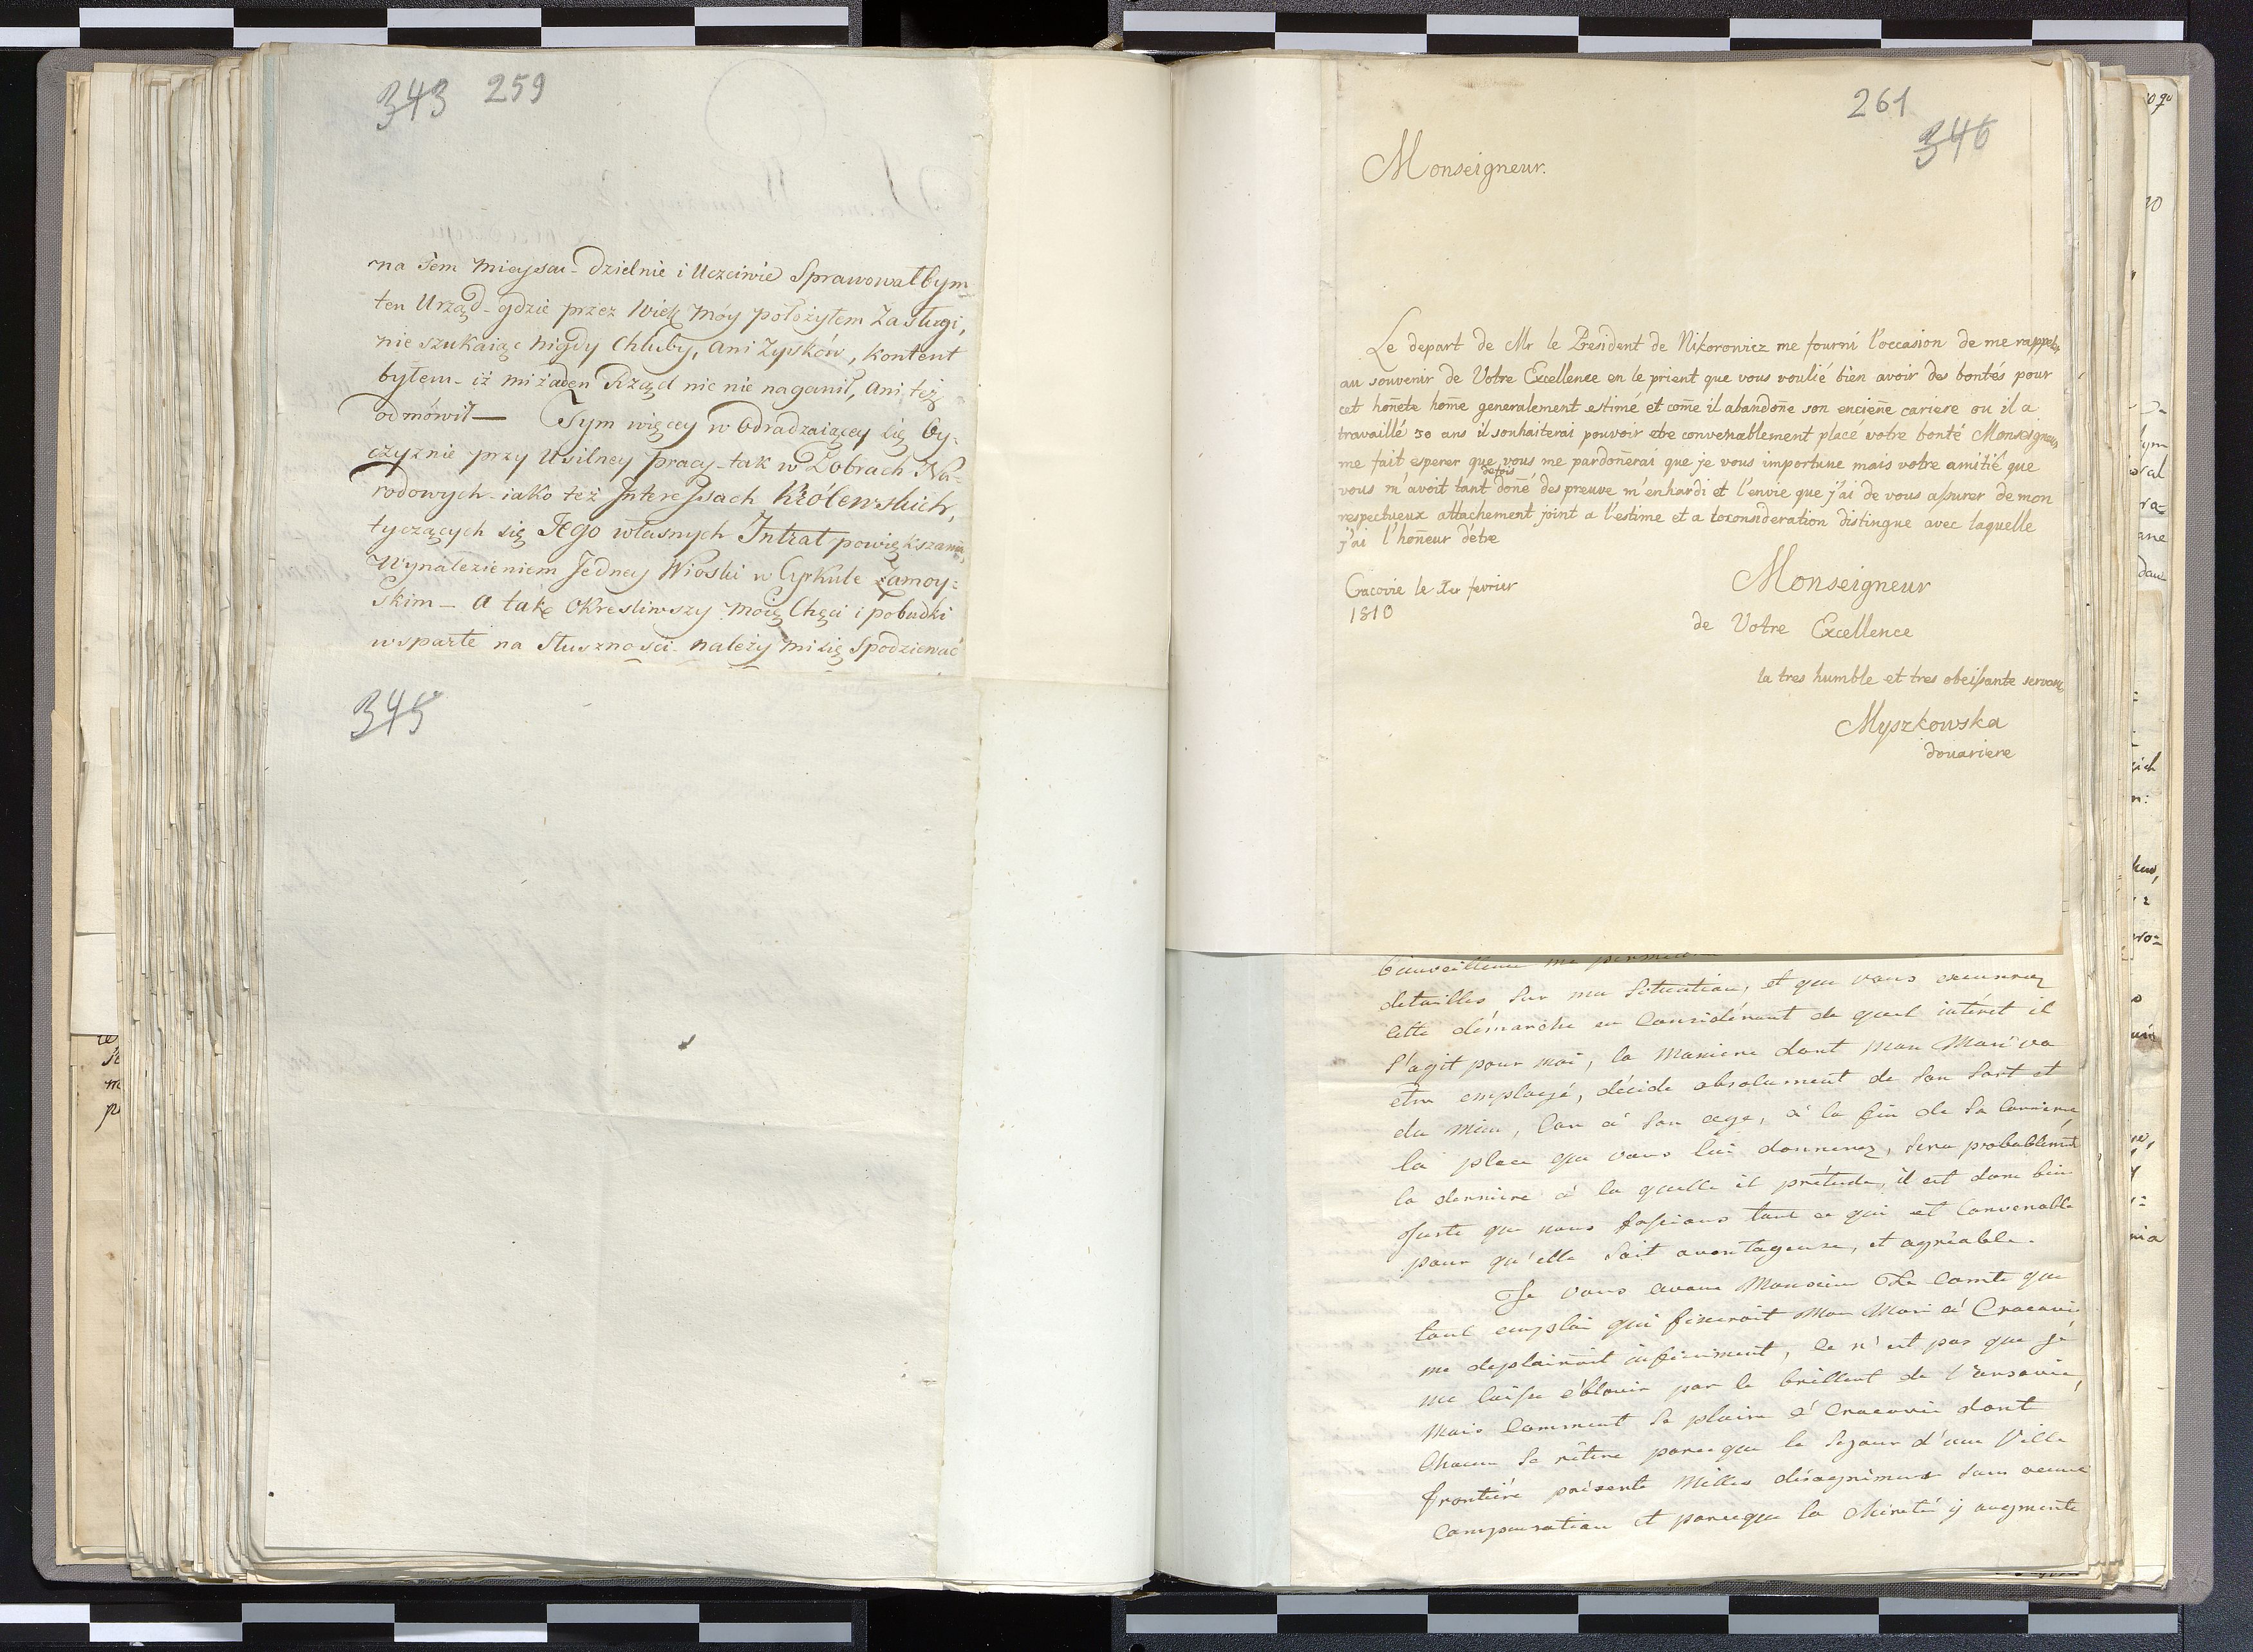 343 259
na Tem mieyscu - dzielnie i Uczciwie Sprawowałbym
ten Urząd - gdzie przez Wiek móy położyłem Zasługi,
nie szukaiąc nigdy Chluby, ani Zysków, kontent
byłem - iż mi żaden Rząd nic nie naganił, Ani też
odmówił — Tym więcey w Odradzaiącey się Oy-
czyznie przy Usilney pracy - tak w Dobrach Na-
rodowych - iako też Interessach Królewskich,
tyczących się Jego własnych Intrat powiększania,
Wynalezieniem Jedney Wioski w Cyrkule Zamoy-
skim - a tak Okresliwszy moię Chęci i pobudki
wsparte na Słusznosci - należy mi się Spodziewać
345
261
346
Monseigneur.
Le depart de Mr le President de Nikorowicz me fourni l'occasion de me rappeler
au souvenir de Votre Excellence en le prient que vous voulié bien avoir des bontés pour
cet hoñete home generalement estimé et come il abandoñe son encieñe cariere ou il a
travaillé 30 ans il souhaiterai pouvoir etre convenablement placé votre bonté Monseigneur
me fait esperer que vous me pardoñerai que je vous importune mais votre amitié que
vous m'avoit tant defois doñé des preuve m'enhardi et l'envie que j'ai de vous assurer de mon
respectueux attachement joint a l'estime et a la consideration distingue avec laquelle
j'ai l'hoñeur d'etre
Cracovie le 1er fevrier
1810
Monseigneur
de Votre Excellence
la tres humble et tres obeissante servante
Myszkowska
douariere
bienveillence me
detailles sur ma Situation, et que vous excuserez
cette démarche en Considérant de quel intérêt il
s'agit pour moi, la Maniere dont mon Mari va
etre employé, décide absolument de son Sort et
du mien, Car à son age, à la fin de sa Carriere,
la place que vous lui donnerez, sera probablement
la derniere à la quelle il prétende, il est donc bien
juste que nous fassions tout ce qui est Convenable
pour qu'elle soit avantageuse, et agréable.
Je vous avoue Monsieur Le Comte que
tout emploi qui fixeroit Mon Mari à Cracovie
me déplairoit infiniment, Ce n'est pas que je
me laisse éblouir par le brillant de Varsovie,
Mais Comment se plaire à Cracovie dont
Chacun se retire parceque le Sejour d'une Ville
frontière présente Milles désagrémens sans aucune
Compensation et parceque la Chérété y augmente